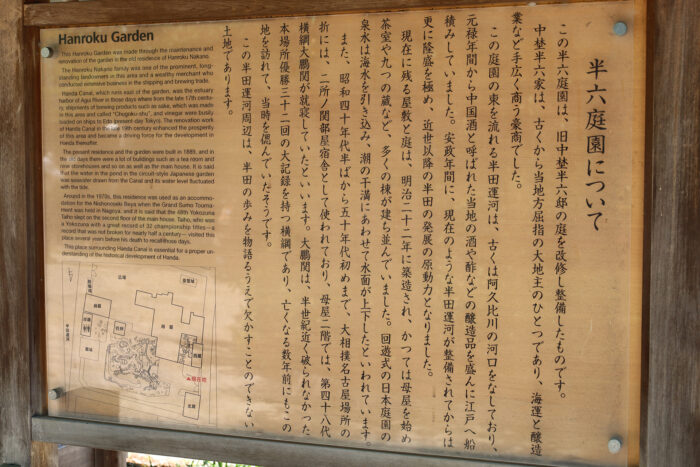 半六庭園について
この半六庭園は、旧中埜半六邸の庭を改修し整備したものです。
中埜半六家は、古くから当地方屈指の大地主のひとつであり、海運と醸造
業など手広く商う豪商でした。
この庭園の東を流れる半田運河は、古くは阿久比川の河口をなしており、
元禄年間から中国酒と呼ばれた当地の酒や酢などの醸造品を盛んに江戸へ船
積みしていました。安政年間に、現在のような半田運河が整備されてからは
更に隆盛を極め、近世以降の半田の発展の原動力となりました。
現在に残る屋敷と庭は、明治二十二年に築造され、かつては母屋を始め
茶室や九つの蔵など、多くの棟が建ち並んでいました。回遊式の日本庭園の
泉水は海水を引き込み、潮の干満にあわせて水面が上下したといわれています。
また、昭和四十年代半ばから五十年代初めまで、大相撲名古屋場所の
折には、二所ノ関部屋宿舎として使われており、母屋二階では、第四十八代
横綱大鵬関が就寝していたといいます。大鵬関は、半世紀近く破られなかった
本場所優勝三十二回の大記録を持つ横綱であり、亡くなる数年前にもこの
地を訪れて、当時を偲んでいたそうです。
この半田運河周辺は、半田の歩みを物語るうえで欠かすことのできない
土地であります。
Hanroku Garden
This Hanroku Garden was made through the maintenance and
renovation of the garden in the old residence of Hanroku Nakano.
The Hanroku Nakano family was one of the prominent, long-
standing landowners in this area and a wealthy merchant who
conducted extensive business in the shipping and brewing trade.
Handa Canal, which runs east of the garden, was the estuary
harbor of Agui River in those days where from the late 17th centu-
ry, shipments of brewing products such as sake, which was made
in this area and called "Chogoku-shu", and vinegar were busily
loaded on ships to Edo (present-day Tokyo). The renovation work
of Handa Canal in the late 19th century enhanced the prosperity
of this area and became a driving force for the development in
Handa thereafter.
The present residence and the garden were built in 1889, and in
the old days there were a lot of buildings such as a tea room and
nine storehouses and so on as well as the main house. It is said
that the water in the pond in the circuit-style Japanese garden
was seawater drawn from the Canal and its water level fluctuated
with the tide.
Around in the 1970s, this residence was used as an accommo-
dation for the Nishonoseki Beya when the Grand Sumo Tourna-
ment was held in Nagoya; and it is said that the 48th Yokozuna
Taiho slept on the second floor of the main house. Taiho, who was
a Yokozuna with a great record of 32 championship titles—a
record that was not broken for nearly half a century— visited this
place several years before his death to recall those days.
This place surrounding Handa Canal is essential for a proper un-
derstanding of the historical development of Handa.
広場
母屋
現在地